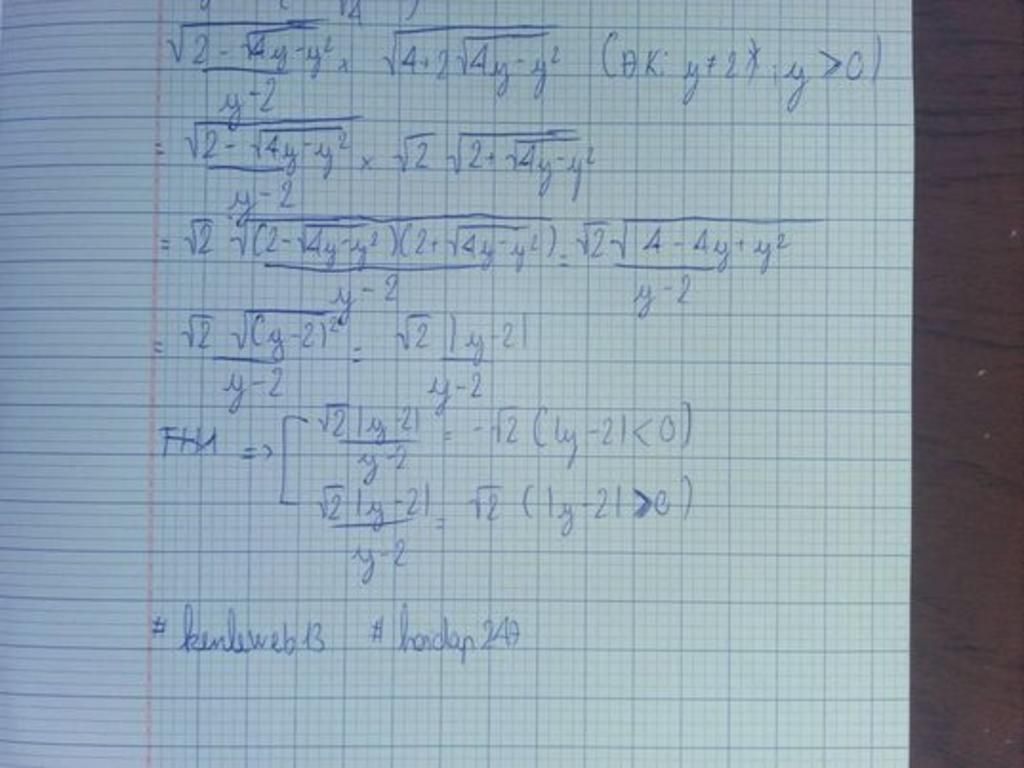 √(2 - √(4y - y²)) / (y - 2) × √(4 + 2√(4y - y²)) (ĐK: y ≠ 2; y > 0)
= √(2 - √(4y - y²)) / (y - 2) × √2 √(2 + √(4y - y²))
= √2 √((2 - √(4y - y²))(2 + √(4y - y²))) / (y - 2) = √2 √(4 - 4y + y²) / (y - 2)
= √2 √((y - 2)²) / (y - 2) = √2 |y - 2| / (y - 2)
=> [ √2 |y - 2| / (y - 2) = -√2 (|y - 2| < 0)
√2 |y - 2| / (y - 2) = √2 (|y - 2| > 0)
# kenleweb13 # hoidap247